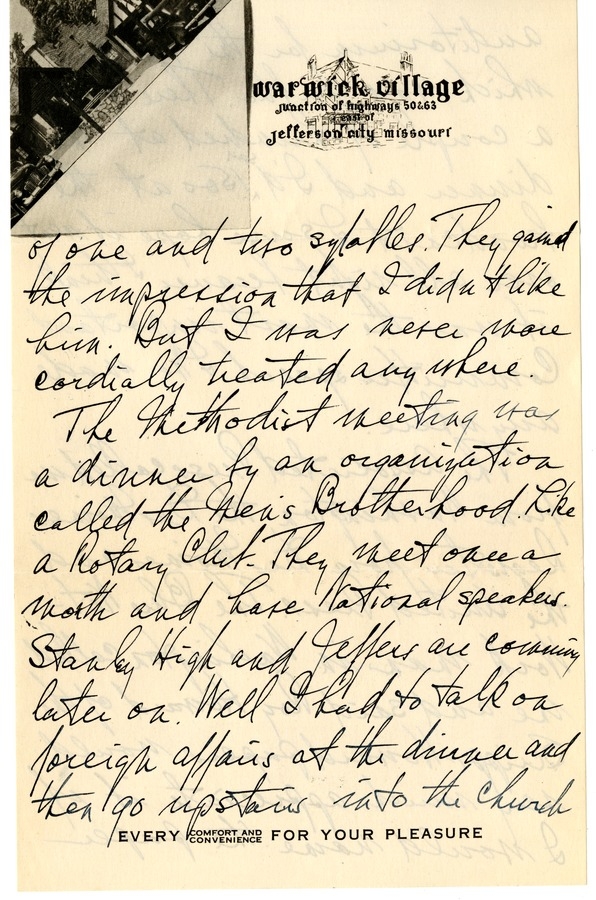 warwick village
junction of highways 50&63
east of
jefferson city missouri
of one and two sylables. They gained
the impression that I didn't like
him. But I was never more
cordially treated anywhere.
The Methodist meeting was
a dinner by an organization
called the Men's Brotherhood. Like
a Rotary Club. They meet once a
month and have National speakers.
Stanley High and Jeffers are coming
later on. Well I had to talk on
foreign affairs at the dinner and
then go upstairs into the church
EVERY COMFORT AND CONVENIENCE FOR YOUR PLEASURE